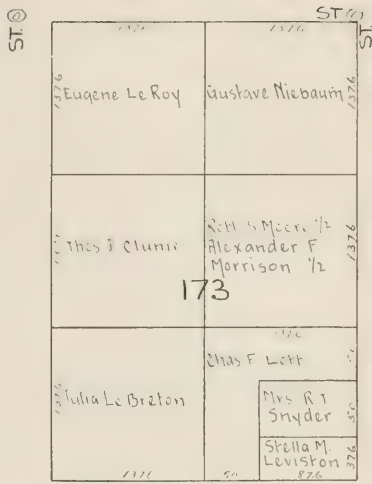 ST.
ST
ST.
1376
1376
Eugene Le Roy
Gustave Niebaum
1376
Thos J Clunie
Robt S Moore 1/2
Alexander F
Morrison 1/2
1376
173
Chas F Lott
Julia Le Breton
Mrs R J
Snyder
50
Stella M.
Leviston
376
1376
50
876